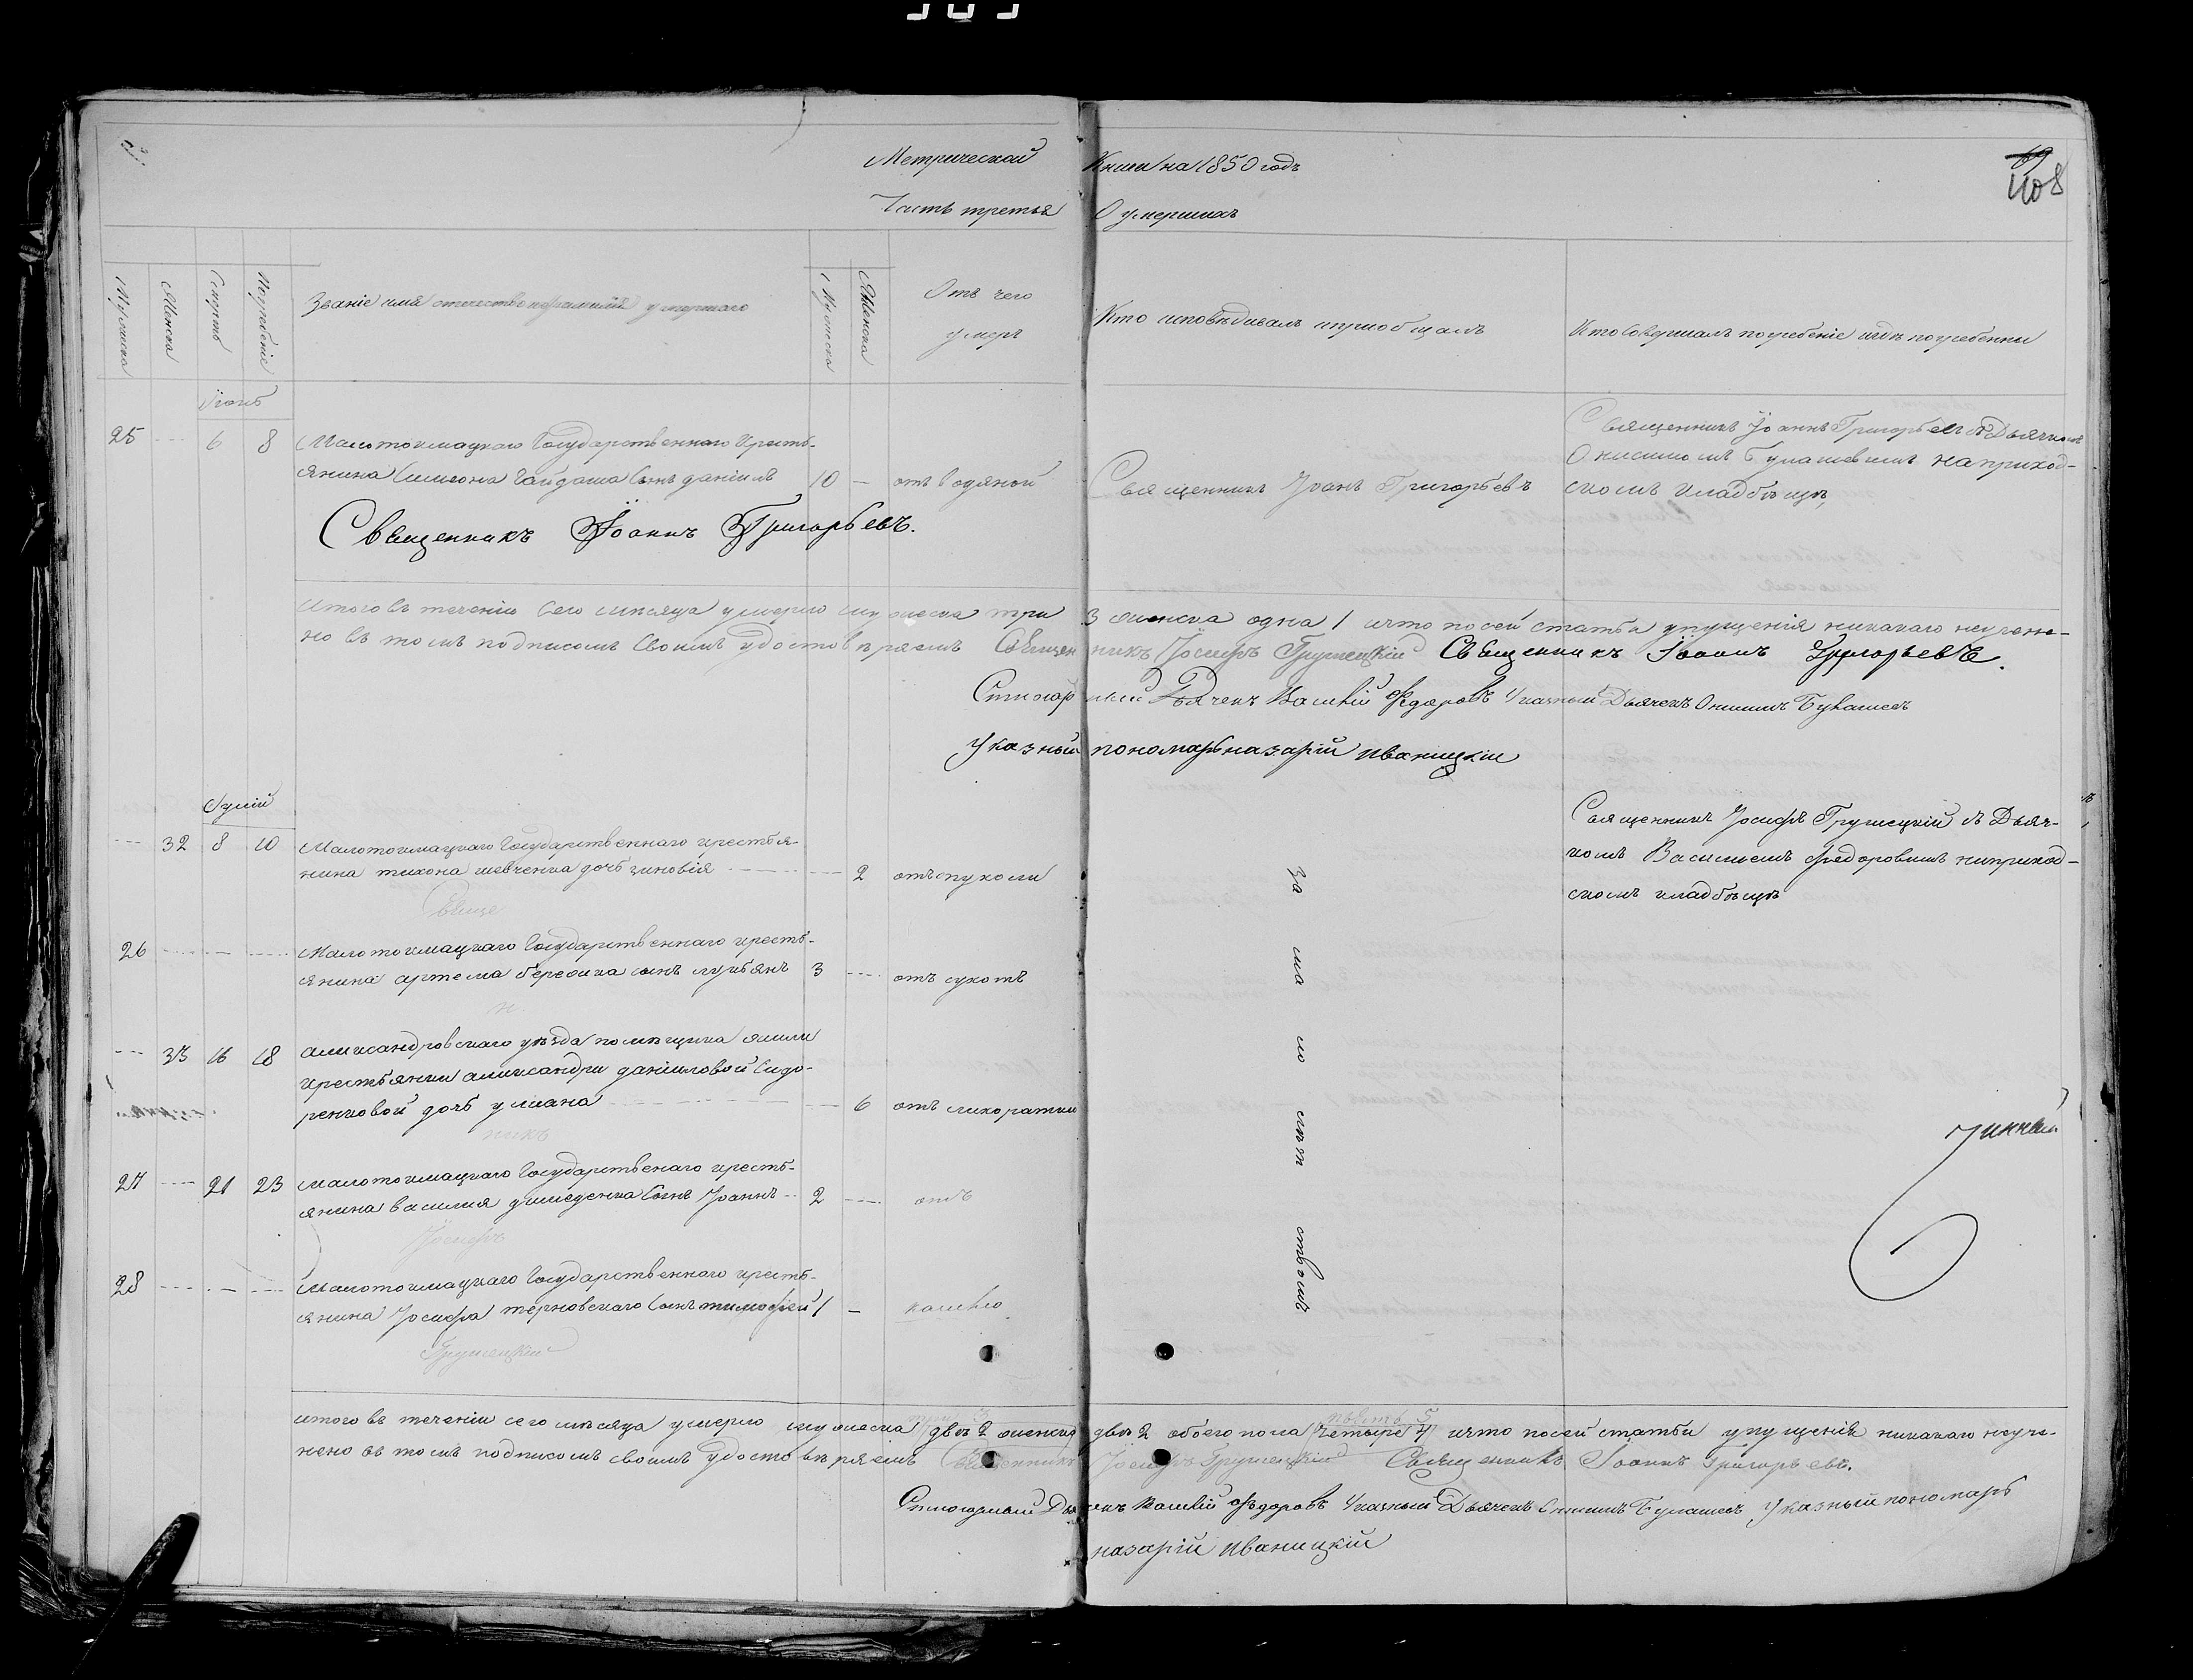 Метрической Книги на 1850 годъ
408
Часть третья О умершихъ
Мужеска
Женска
Смерть
Погребеніе
Званіе имя отечество и фамилія умершаго
Мужеска
Женска
Отъ чего
умеръ
Кто исповѣдивалъ и приобщалъ
Кто совершалъ погребеніе и гдѣ погребенны
25 6 8 Малотокмацкаго Государственнаго Кресть-
янина Симеона Гайдаша сынъ даніилъ 10 — отъ водяной
Священникъ Іоанъ Григорьевъ
Священникъ Іоаннъ Григорьевъ съ Дьячкомъ
Онисимомъ Букашевимъ на приход-
скомъ кладбѣщѣ,
Священникъ Іоаннъ Григорьевъ.
итого въ теченіи сего мѣсяца умерло мужеска три 3 женска одна 1 ичто посей статьи упущенія никакаго неучене-
но въ томъ подписомъ своимъ удостовѣряемъ Священникъ Іосифъ Грушецкій Священникъ Іоаннъ Григорьевъ.
Дячекъ Василій Федоровъ Указный Дьячекъ Онисимъ Букашев
Указный пономарь назарій иваницкій
Іулій
--- 32 8 10 Малотокмацкаго Государственнаго крестья-
нина тихона шевченка дочь зиновія --- 2 отъ опухоли
Священникъ Іосифъ Грушецкій съ Дьяч-
комъ Василіемъ Федоровимъ наприход-
скомъ кладбѣщѣ
Свяще
26 --- Малотокмацкаго Государственнаго кресть-
янина артема сынъ лукьянъ 3 --- отъ сухотъ
н
--- 33 16 18 александровскаго уѣзда помѣщика
крестьянки александри даніиловой Сидо-
ренковой дочь уліана --- 6 отъ лихоратки
никъ
27 --- 21 23 малотокмацкаго Государственаго кресть-
янина василия сынъ Іоаннъ -- 2 --- отъ
Іосифъ
28 --- Малотокмацкаго Государственнаго кресть-
янина Іосифа терновскаго сынъ тимофѣей 1 — кашлю
Грушецкій
за ма ло лѣт ствомъ
итого въ теченіи сего мѣсяца умерло мужеска двѣ 2 женска двѣ 2 обоего пола четыре 4 ичто посей статьи упущенія никакаго неучи-
нено въ томъ подписомъ своимъ удостовѣряемъ Священникъ Іосифъ Грушецкій Священникъ Іоаннъ Григорьевъ.
Дьячекъ Василій Федоровъ Указный Дьячекъ Онисимъ Букашев, Указный пономарь
назарій иваницкій